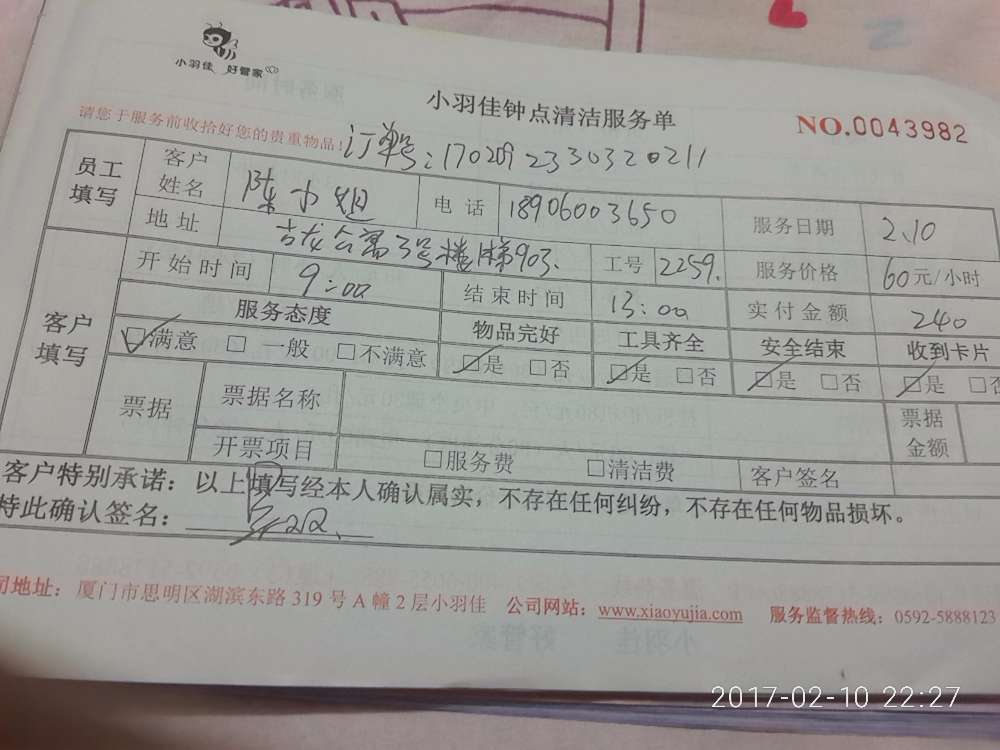 小羽佳 好管家
小羽佳钟点清洁服务单
NO.0043982
请您于服务前收拾好您的贵重物品!
订单号:1702092330320211
员工填写 客户姓名 陈小姐 电话 18906003650 服务日期 2.10
地址 古龙公寓3号楼1梯903. 工号 2259. 服务价格 60元/小时
客户填写 开始时间 9:00 结束时间 13:00 实付金额 240
服务态度 物品完好 工具齐全 安全结束 收到卡片
☑满意 □一般 □不满意 ☑是 □否 ☑是 □否 ☑是 □否 ☑是 □否
票据 票据名称 票据金额
开票项目 □服务费 □清洁费 客户签名
客户特别承诺:以上填写经本人确认属实,不存在任何纠纷,不存在任何物品损坏。
特此确认签名:
司地址:厦门市思明区湖滨东路 319 号 A 幢 2 层小羽佳 公司网站:www.xiaoyujia.com 服务监督热线:0592-5888123
2017-02-10 22:27